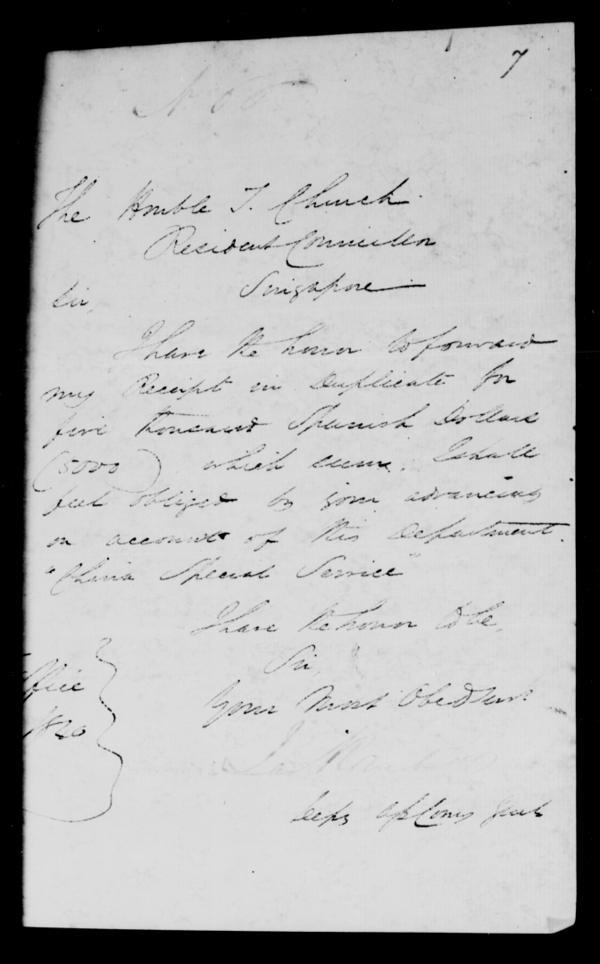 7
The Honble T. Church
Resident Councillor
Singapore
Sir,
I have the honor to forward
my Receipt in Duplicate for
five thousand Spanish Dollars
(5000) which sum I shall
feel obliged by your advancing
on account of this Department.
"China Special Service"
I have the honor to be,
Sir,
Your Most Obed Servt
ffice
Genl